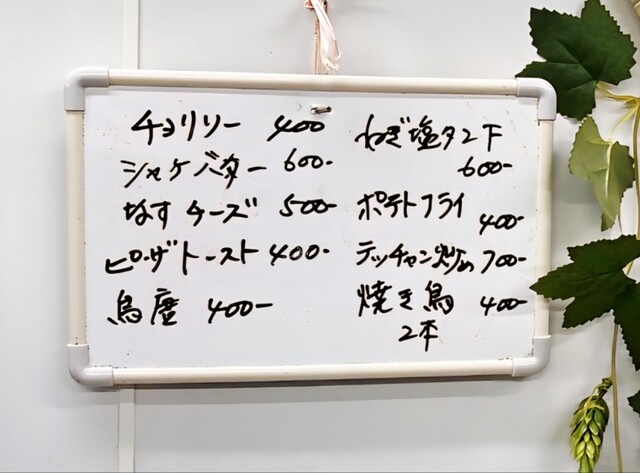 チョリソー 400
シャケバター 600-
なすチーズ 500-
ピザトースト 400-
鳥 400-
ねぎ塩タン下
600-
ポテトフライ
400-
テッチャン炒め 700-
焼き鳥 400-
2本